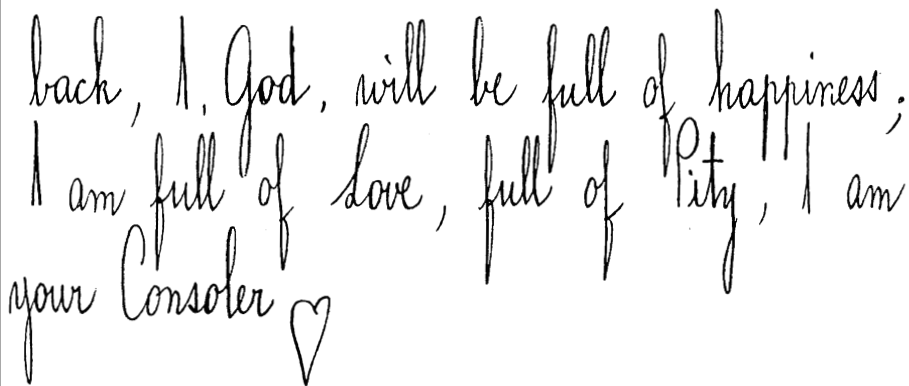 back, I, God, will be full of happiness;
I am full of Love, full of Pity, I am
your Consoler ♡